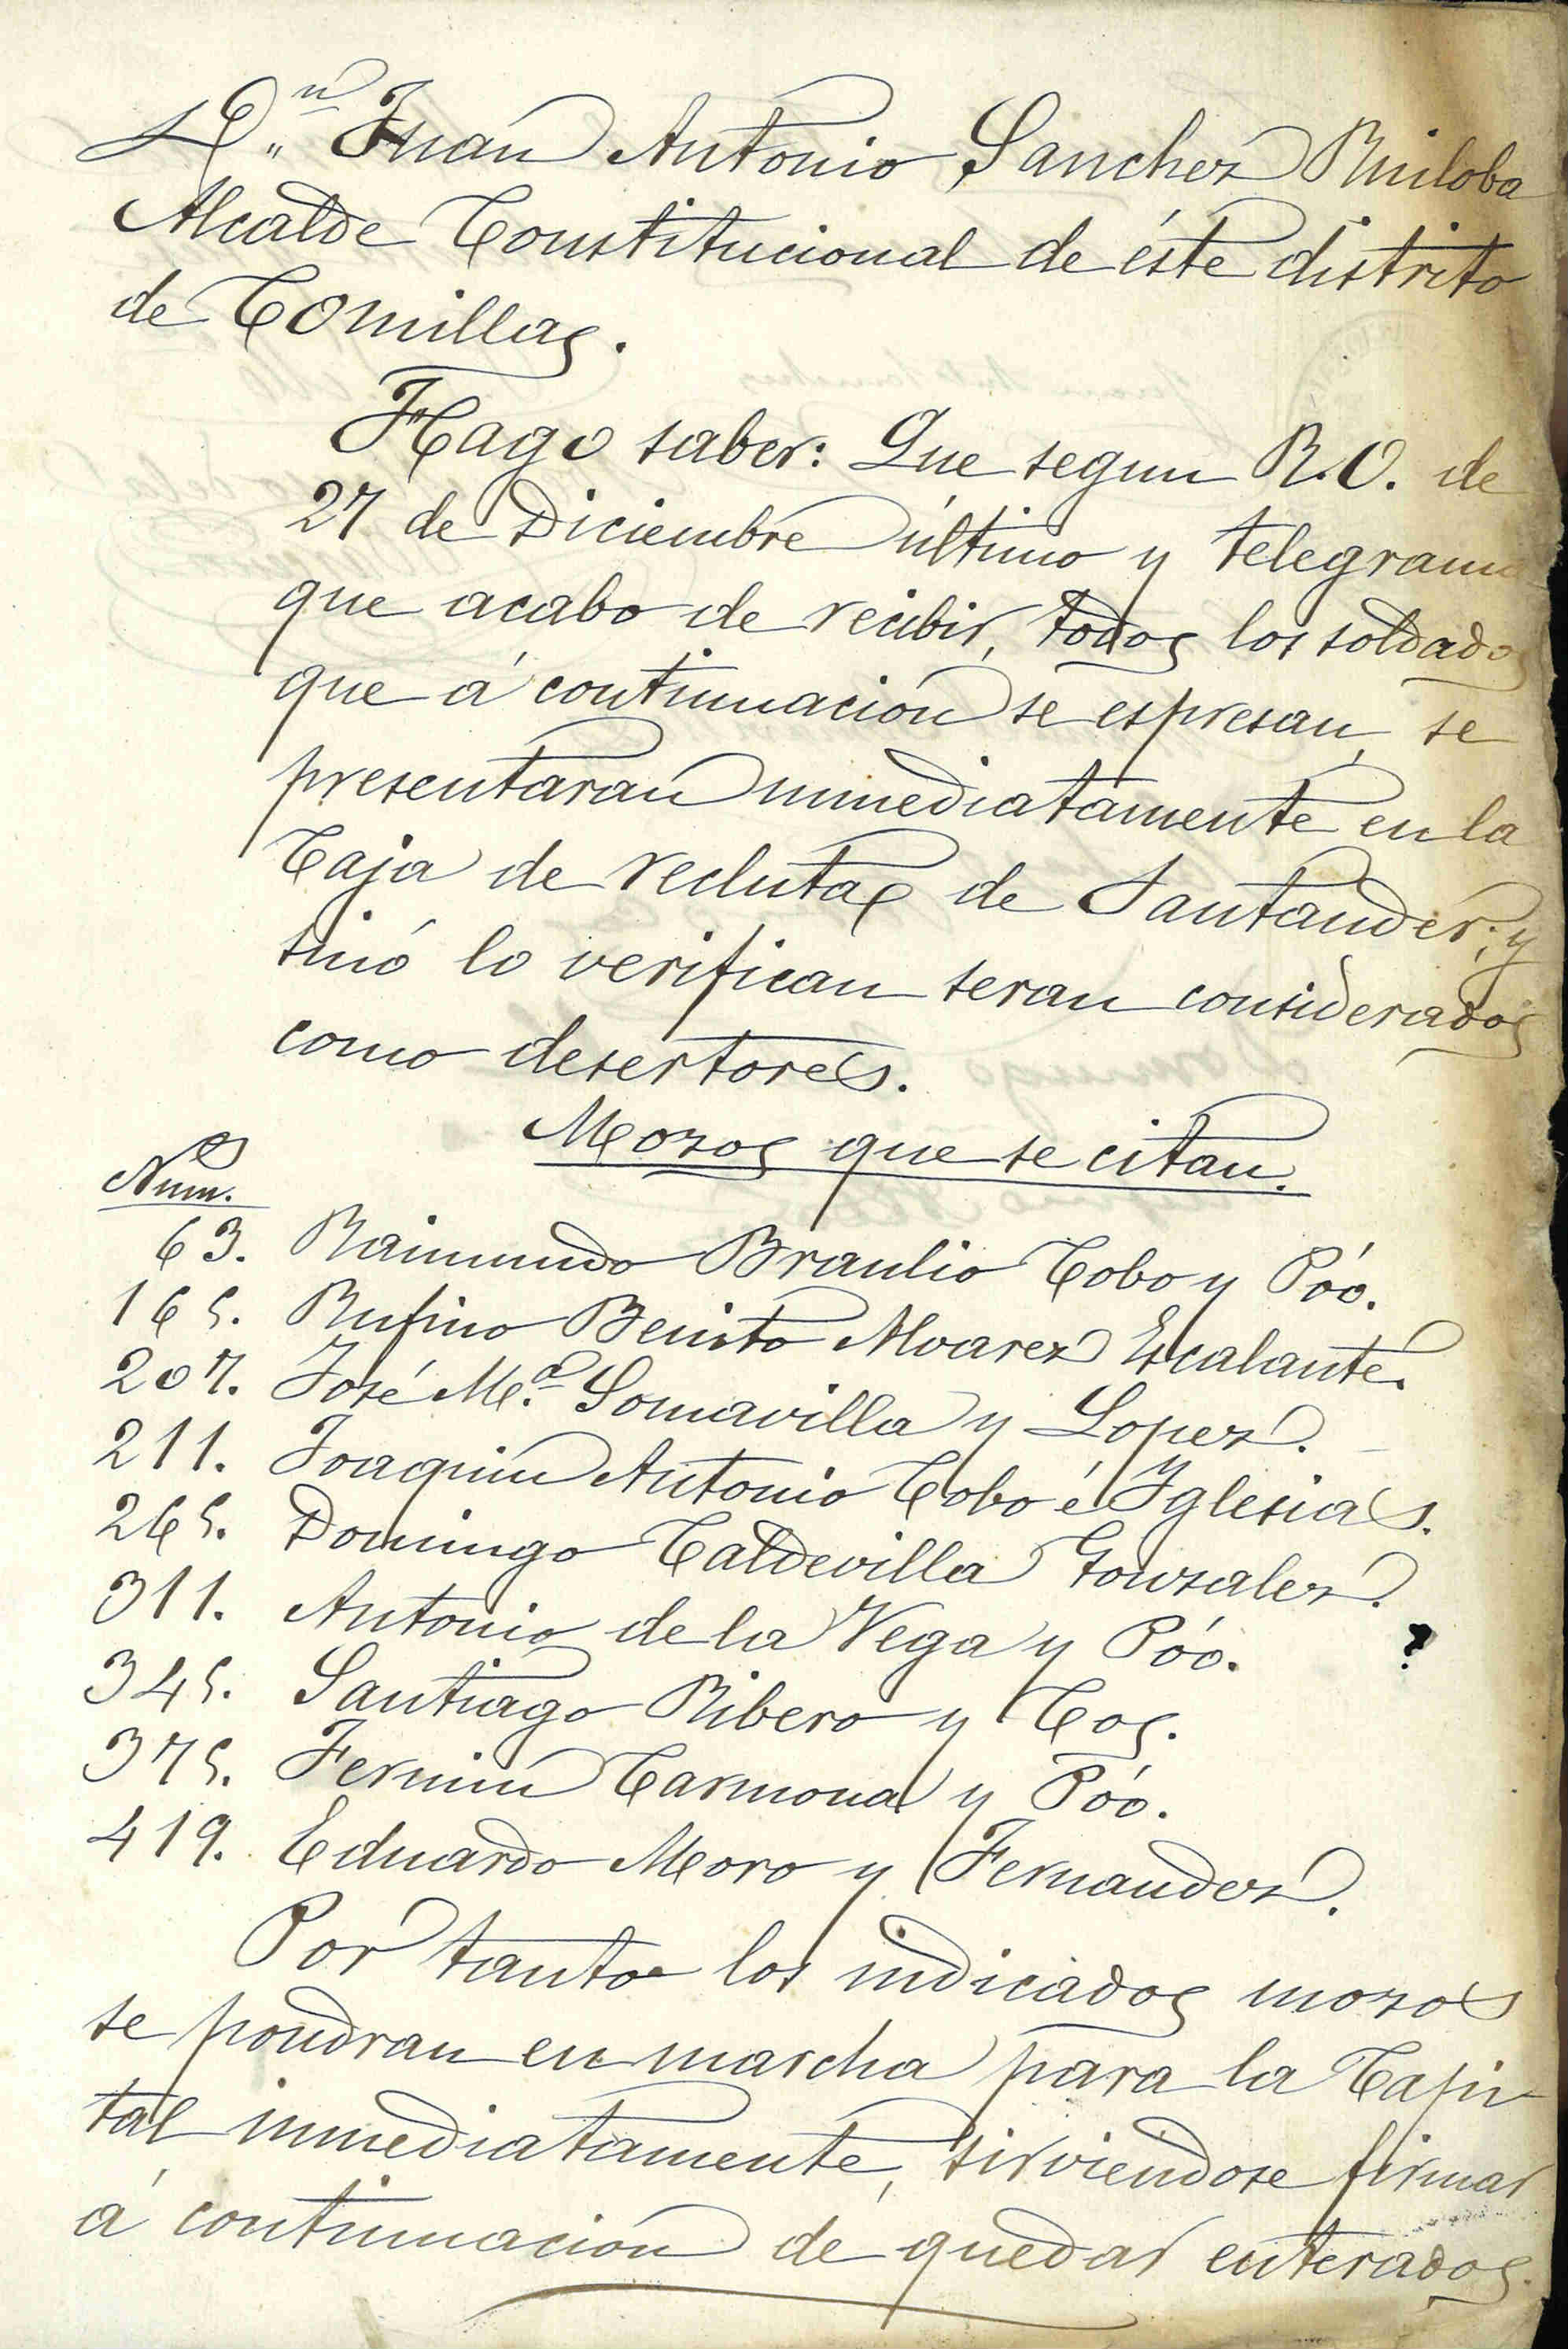 D.ⁿ Juan Antonio Sanchez Ruiloba
Alcalde Constitucional de éste distrito
de Comillas.
Hago saber: Que segun R.O. de
27 de Diciembre último y telegrama
que acabo de recibir, todos los soldados
que á continuación se espresan, se
presentaran inmediatamente en la
Caja de reclutas de Santander; y
sinó lo verifican seran considerados
como desertores.
Mozos que se citan.
Num.
63. Raimundo Braulio Cobo y Póo.
165. Rufino Benito Alvarez Escalante.
207. José M.ª Somavilla y Lopez.
211. Joaquin Antonio Cobo é Iglesias.
265. Domingo Caldevilla Gonzalez.
311. Antonio de la Vega y Póo.
345. Santiago Ribero y Cos.
375. Fermin Carmona y Póo.
419. Eduardo Moro y Fernandez.
Por tanto los indicados mozos
se pondran en marcha para la Capi-
tal inmediatamente, sirviendose firmar
á continuación de quedar enterados.